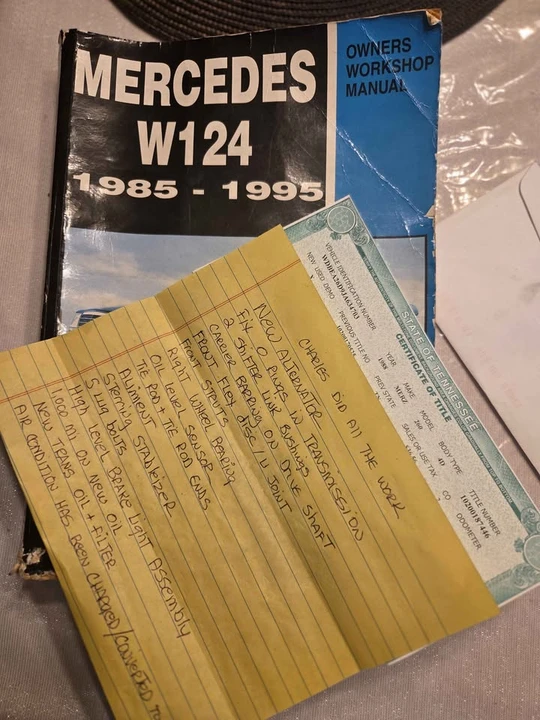 MERCEDES
W124
1985 - 1995
OWNERS
WORKSHOP
MANUAL
STATE OF TENNESSEE
CERTIFICATE OF TITLE
VEHICLE IDENTIFICATION NUMBER
YEAR
MAKE
MODEL
BODY TYPE
TITLE NUMBER
1988
MERZ
260
4D
10200187446
NEW USED DEMO
PREVIOUS TITLE NO
PREV STATE
SALES OR USE TAX
CO
ODOMETER
CHARLES DID All THE WORK
NEW AlTERNATOR
FIX O RINGS IN TRANSMISSION
2 SHIFTER LINK BUSHINGS
CARRIER BEARING ON DRIVE SHAFT
FRONT FLEX DISC/U JOINT
FRONT STRUTS
Right WHEEL BEARING
OIL LEVEL SENSOR
TIE ROD & TIE ROD ENDS
Alinment
Steering STABILIZER
5 Lug bolts
High LEVEL BRAKE Light ASSEMBLY
1,000 MI ON NEW OIL
NEW TRANS OIL & FILTER
AIR CONDITION HAS BEEN CHARGED/CONVERTED TO